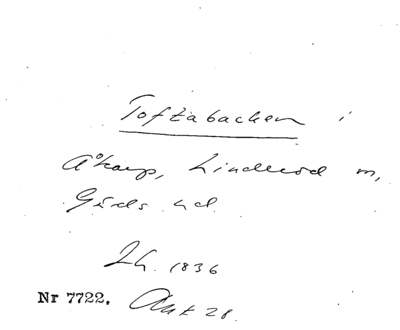 Toftabacken i
Åkarp, Linderöd sn,
Gärds hd.
Lh. 1836
Nr 7722. Ant 28.